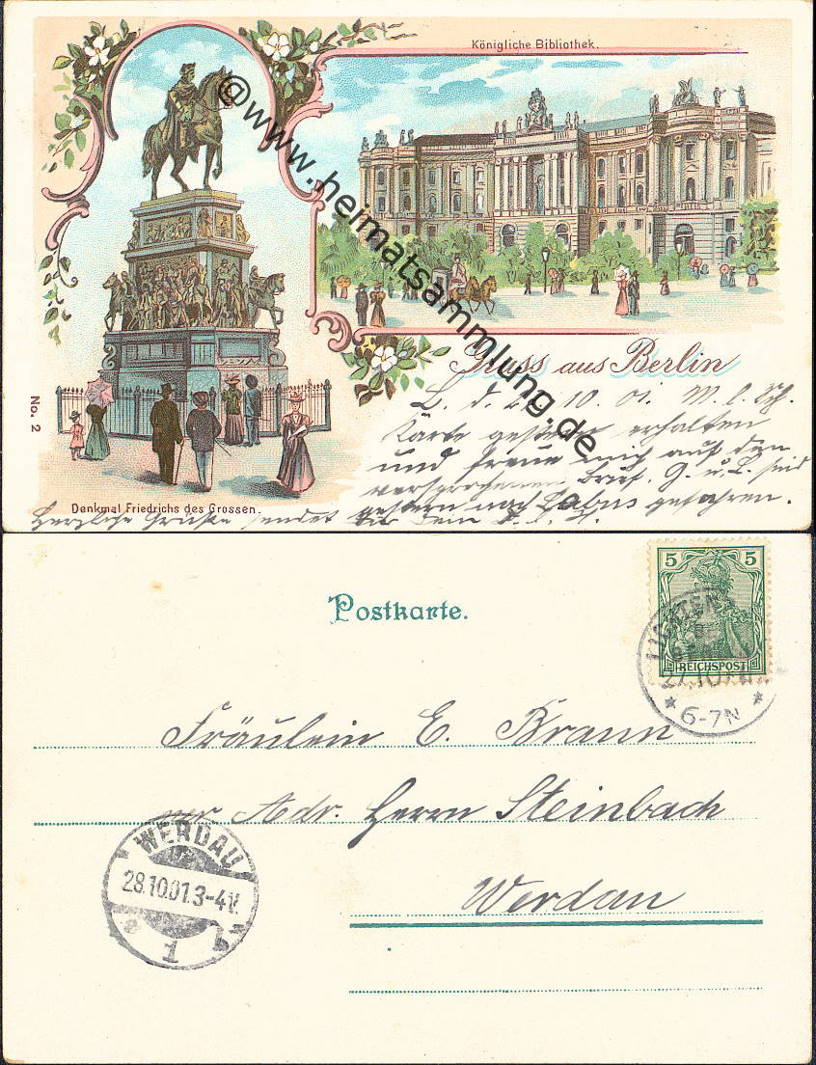 Königliche Bibliothek.
@www.heimatsammlung.de
Gruss aus Berlin
No. 2
B. d. 10. 01. M. l. Sch.
Karte gestern erhalten
und freue mich auf den
versprochenen Brief. G. u. L. sind
gestern nach Labus gefahren.
Denkmal Friedrichs des Grossen.
Herzliche Grüße sendet Dir Dein
Postkarte.
5 5
REICHSPOST
LICHTEN
27.10.
* 6-7N *
Fräulein E. Braun
Adr. Herrn Steinbach
WERDAU
28.10.01.3-4V.
1
Werdau